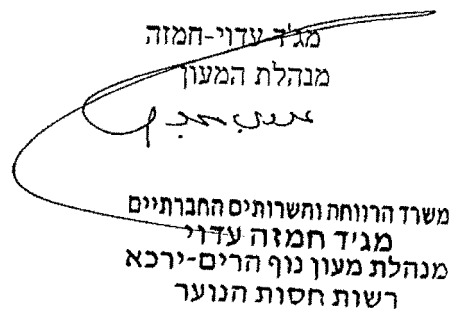 מג'ד עדוי-חמזה
מנהלת המעון
משרד הרווחה והשרותים החברתיים
מג'יד חמזה עדוי
מנהלת מעון נוף הרים-ירכא
רשות חסות הנוער